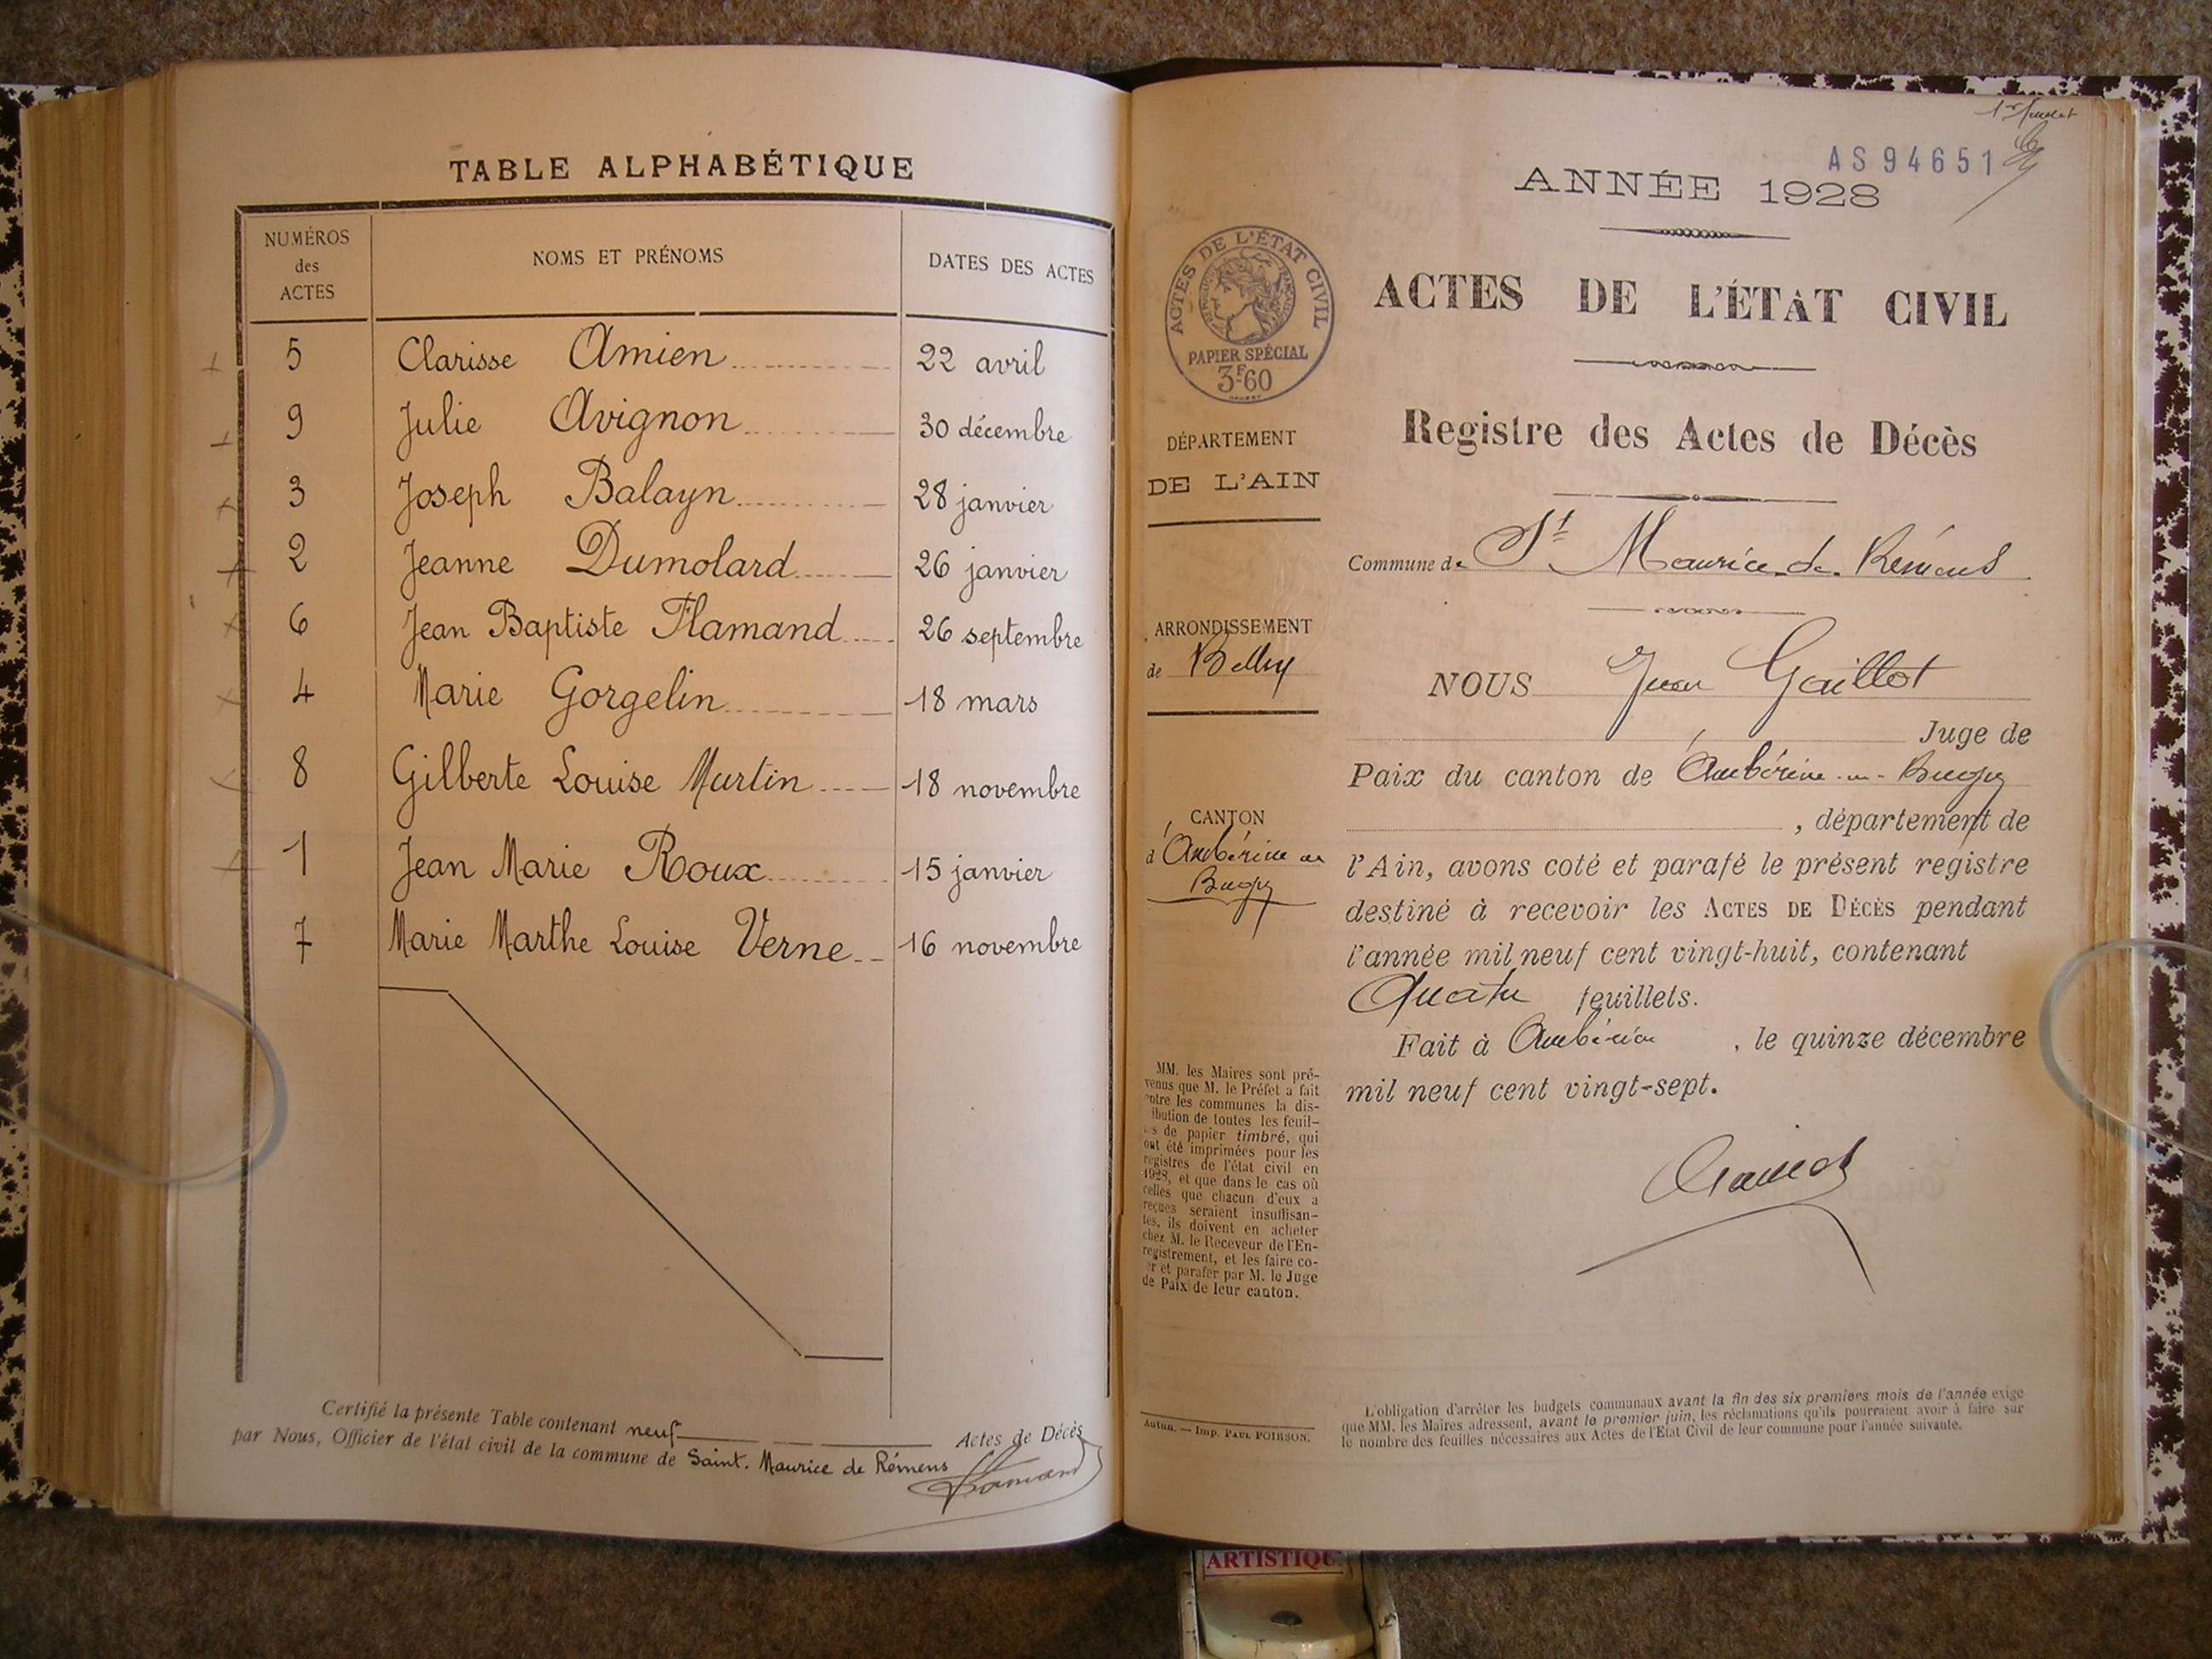 TABLE ALPHABÉTIQUE
NUMÉROS des ACTES NOMS ET PRÉNOMS DATES DES ACTES
5 Clarisse Amien 22 avril
9 Julie Avignon 30 décembre
3 Joseph Balayn 28 janvier
2 Jeanne Dumolard 26 janvier
6 Jean Baptiste Flamand 26 septembre
4 Marie Gorgelin 18 mars
8 Gilberte Louise Murtin 18 novembre
1 Jean Marie Roux 15 janvier
7 Marie Marthe Louise Verne 16 novembre
Certifié la présente Table contenant neuf Actes de Décès
par Nous, Officier de l'état civil de la commune de Saint. Maurice de Rémens
AS94651
ANNÉE 1928
ACTES DE L'ÉTAT CIVIL
Registre des Actes de Décès
Commune de St Maurice-de-Rémens
NOUS Jean Gaillot
Juge de
Paix du canton de Ambérieu-en-Bugey
, département de
l'Ain, avons coté et parafé le présent registre
destiné à recevoir les ACTES DE DÉCÈS pendant
l'année mil neuf cent vingt-huit, contenant
Quatre feuillets.
Fait à Ambérieu , le quinze décembre
mil neuf cent vingt-sept.
ACTES DE L'ÉTAT CIVIL
PAPIER SPÉCIAL
3F60
DÉPARTEMENT
DE L'AIN
ARRONDISSEMENT
de Belley
CANTON
d'Ambérieu en
Bugey
MM. les Maires sont pré-
venus que M. le Préfet a fait
entre les communes la dis-
tribution de toutes les feuil-
les de papier timbré, qui
ont été imprimées pour les
registres de l'état civil en
1928, et que dans le cas où
celles que chacun d'eux a
reçues seraient insuffisan-
tes, ils doivent en acheter
chez M. le Receveur de l'En-
registrement, et les faire co-
ter et parafer par M. le Juge
de Paix de leur canton.
Autun. — Imp. PAUL POIRSON.
L'obligation d'arrêter les budgets communaux avant la fin des six premiers mois de l'année exige
que MM. les Maires adressent, avant le premier juin, les réclamations qu'ils pourraient avoir à faire sur
le nombre des feuilles nécessaires aux Actes de l'Etat Civil de leur commune pour l'année suivante.
ARTISTIQU